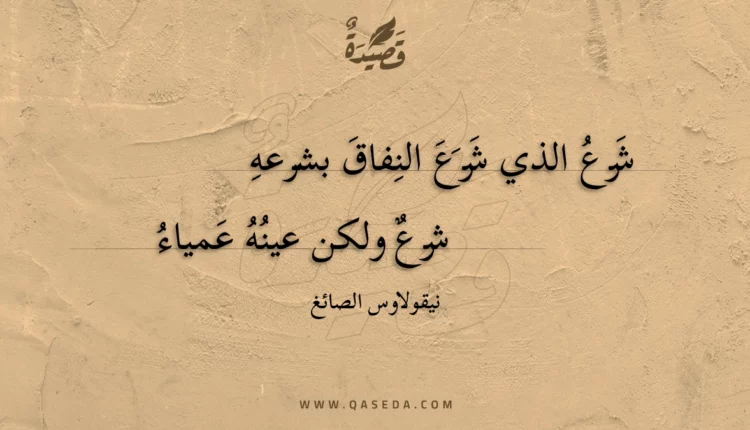 قَصِيدَةٌ
شَرعُ الذي شَرَعَ النِفاقَ بشرعهِ
شرعٌ ولكن عينُهُ عَمياءُ
نيقولاوس الصائغ
WWW.QASEDA.COM